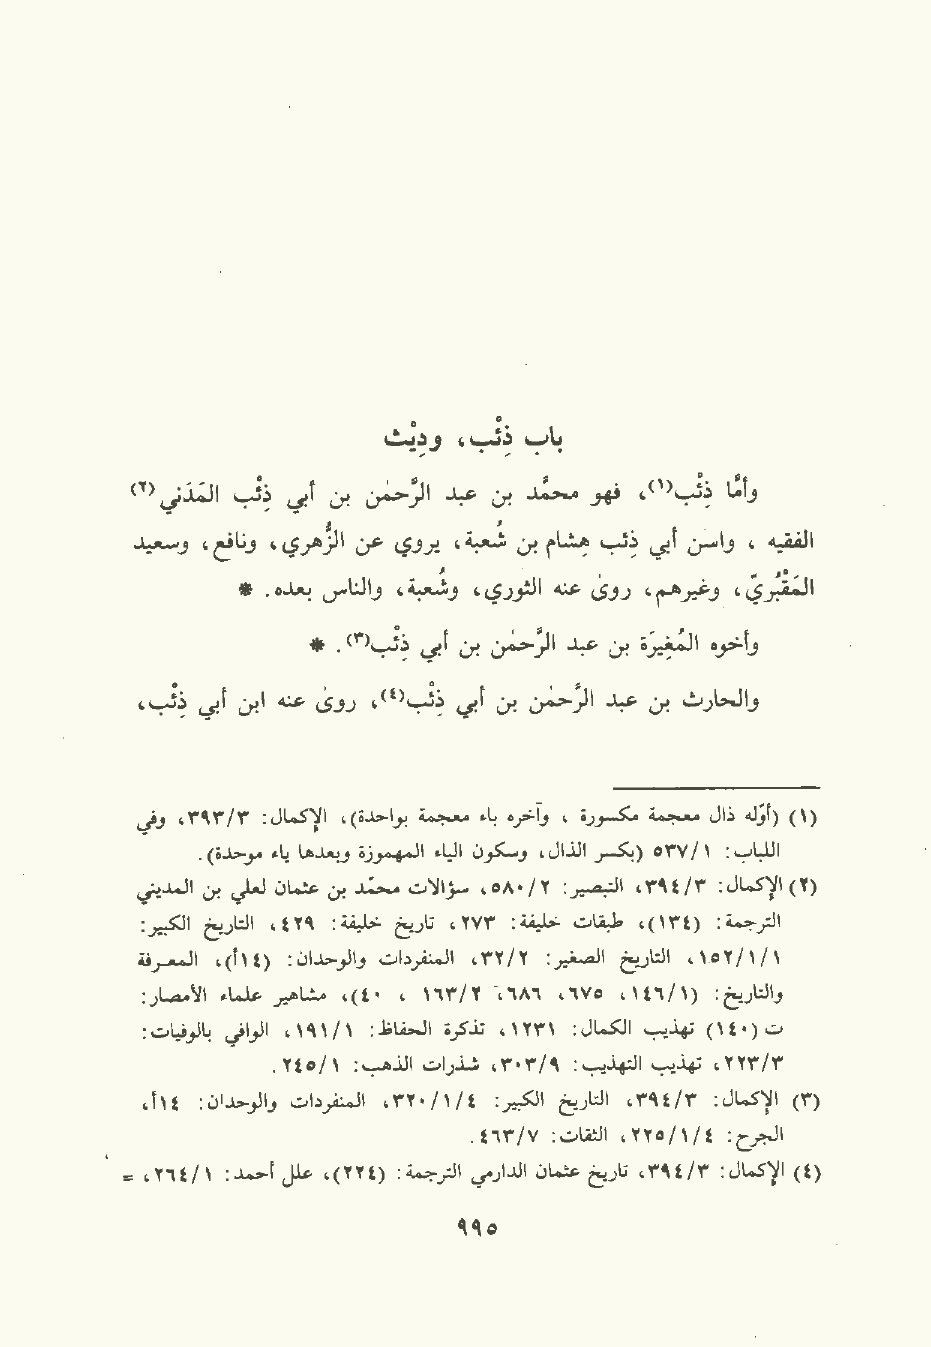 باب ذِئْب، ودِيْث
وأمَّا ذِئْب(١)، فهو محمَّد بن عبد الرَّحمٰن بن أبي ذِئْب المَدَني(٢)
الفقيه ، واسن أبي ذِئب هشام بن شُعبة، يروي عن الزُّهري، ونافع، وسعيد
المَقْبُريّ، وغيرهم، روىٰ عنه الثوري، وشُعبة، والناس بعده. *
وأخوه المُغيرَة بن عبد الرَّحمٰن بن أبي ذِئْب(٣). *
والحارث بن عبد الرَّحمٰن بن أبي ذِئْب(٤)، روىٰ عنه ابن أبي ذِئْب،
(١) (أوّله ذال معجمة مكسورة ، وآخره باء معجمة بواحدة)، الإكمال: ٣٩٣/٣، وفي
اللباب: ٥٣٧/١ (بكسر الذال، وسكون الياء المهموزة وبعدها باء موحدة).
(٢) الإكمال: ٣٩٤/٣، التبصير: ٥٨٠/٢، سؤالات محمَّد بن عثمان لعلي بن المديني
الترجمة: (١٣٤)، طبقات خليفة: ٢٧٣، تاريخ خليفة: ٤٢٩، التاريخ الكبير:
١٥٢/١/١، التاريخ الصغير: ٣٢/٢، المنفردات والوحدان: (١٤أ)، المعرفة
والتاريخ: (١٤٦/١، ٦٧٥، ٦٨٦، ١٦٣/٢ ، ٤٠)، مشاهير علماء الأمصار:
ت (١٤٠) تهذيب الكمال: ١٢٣١، تذكرة الحفاظ: ١٩١/١، الوافي بالوفيات:
٢٢٣/٣، تهذيب التهذيب: ٣٠٣/٩، شذرات الذهب: ٢٤٥/١.
(٣) الإكمال: ٣٩٤/٣، التاريخ الكبير: ٣٢٠/١/٤، المنفردات والوحدان: ١٤أ،
الجرح: ٢٢٥/١/٤، الثقات: ٤٦٣/٧.
(٤) الإكمال: ٣٩٤/٣، تاريخ عثمان الدارمي الترجمة: (٢٢٤)، علل أحمد: ٢٦٤/١، =
٩٩٥